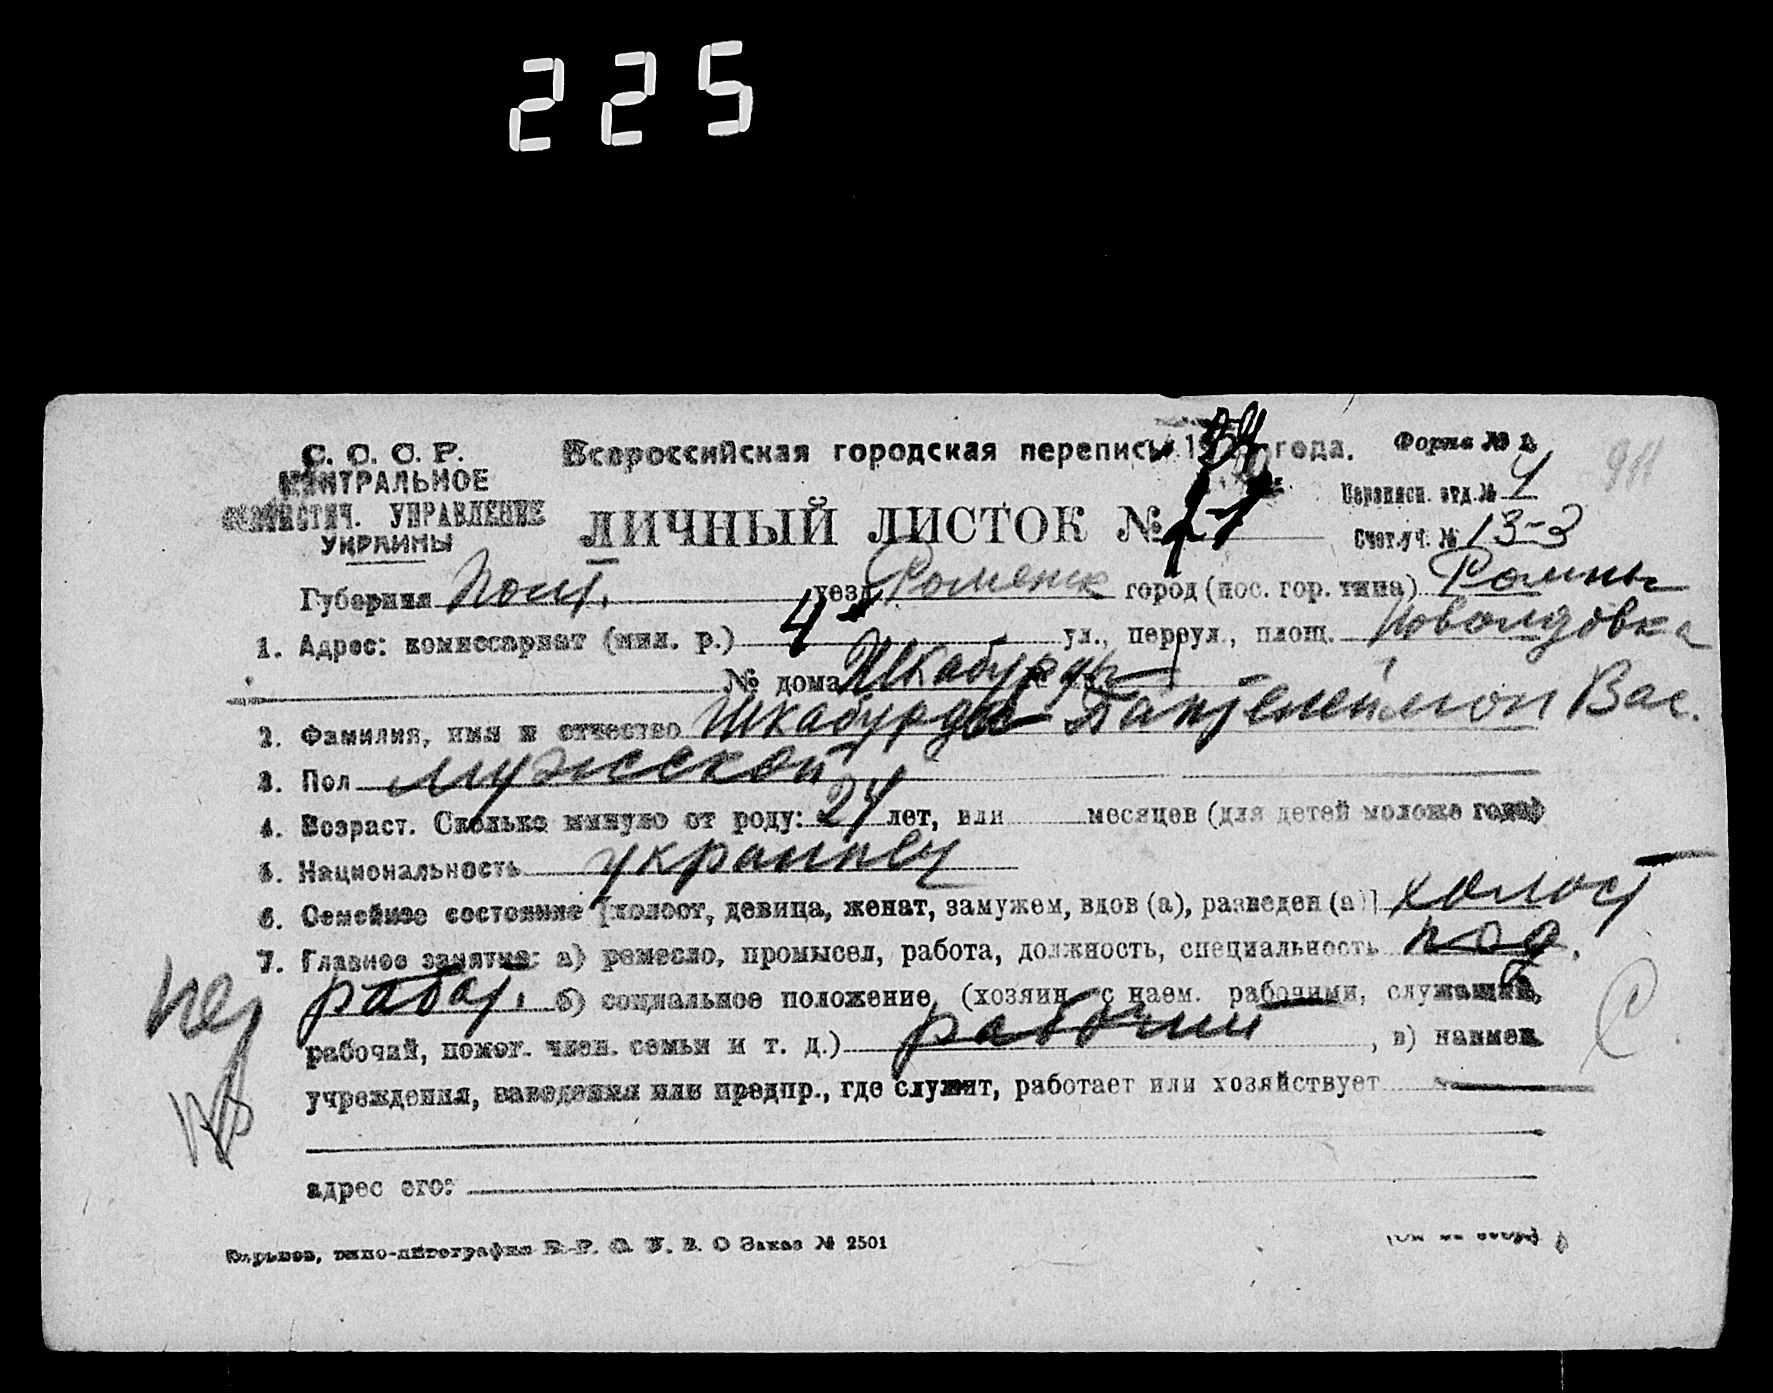 225
С. С. С. Р. Всероссийская городская перепись 19 года. Форма № 2
ЦЕНТРАЛЬНОЕ
СТАТИСТИЧ. УПРАВЛЕНИЕ
УКРАИНЫ
Переписн. отд. № 4
ЛИЧНЫЙ ЛИСТОК №
Счет. уч. № 13-3
Губерния Полт. уезд Роменск город (пос. гор. типа) Ромны
1. Адрес: комиссариат (мил. р.) 4 ул., переул., площ.
№ дома Шкабурды
2. Фамилия, имя и отчество Шкабурда Пантелеймон Вас.
3. Пол мужской
4. Возраст. Сколько минуло от роду: 24 лет, или месяцев (для детей моложе года)
5. Национальность украинец
6. Семейное состояние [холост, девица, женат, замужем, вдов (а), разведен (а)] холост
7. Главное занятие: а) ремесло, промысел, работа, должность, специальность
работ. б) социальное положение (хозяин с наем. рабочими, служащий,
рабочий, помог. член. семьи и т. д.) рабочий, в) наимен.
учреждения, заведения или предпр., где служит, работает или хозяйствует
адрес его:
Харьков, типо-литография Заказ № 2501